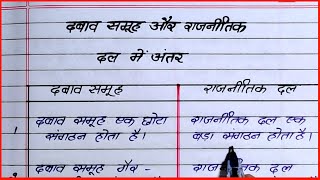 दबाव समूह और राजनीतिक
दल में अंतर
दबाव समूह राजनीतिक दल
1. दबाव समूह एक छोटा राजनीतिक दल एक
संगठन होता है। बड़ा संगठन होता है।
दबाव समूह गैर - दल